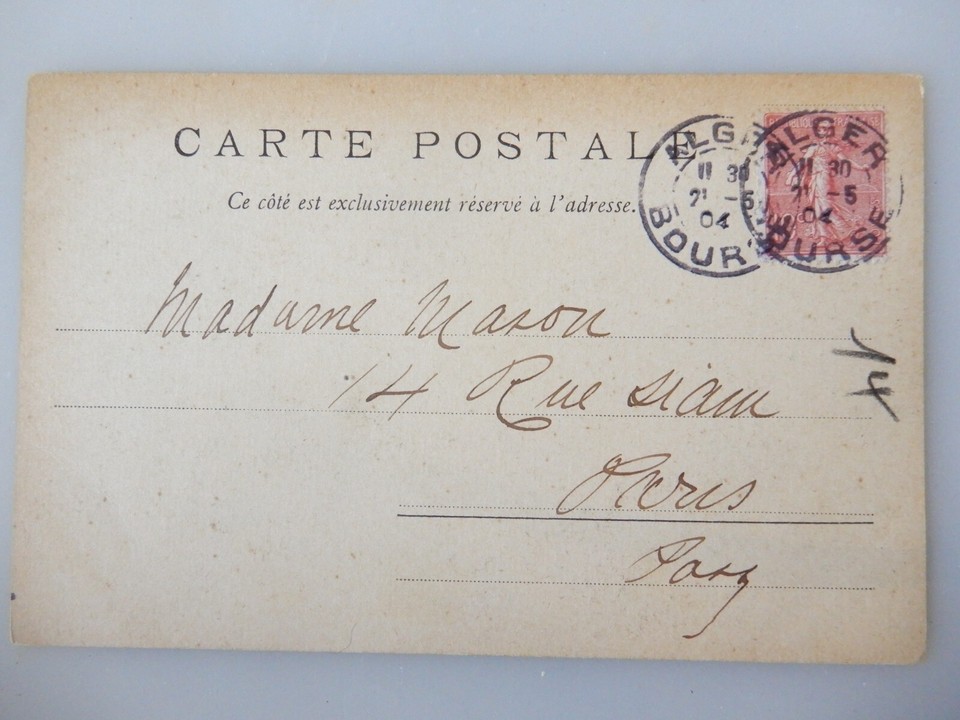 CARTE POSTALE
Ce côté est exclusivement réservé à l'adresse.
ALGER
11 30
21 -5
04
BOURSE
ALGER
11 30
21 -5
04
BOURSE
Madame Mason
14 Rue Siam
Paris
Passy
14